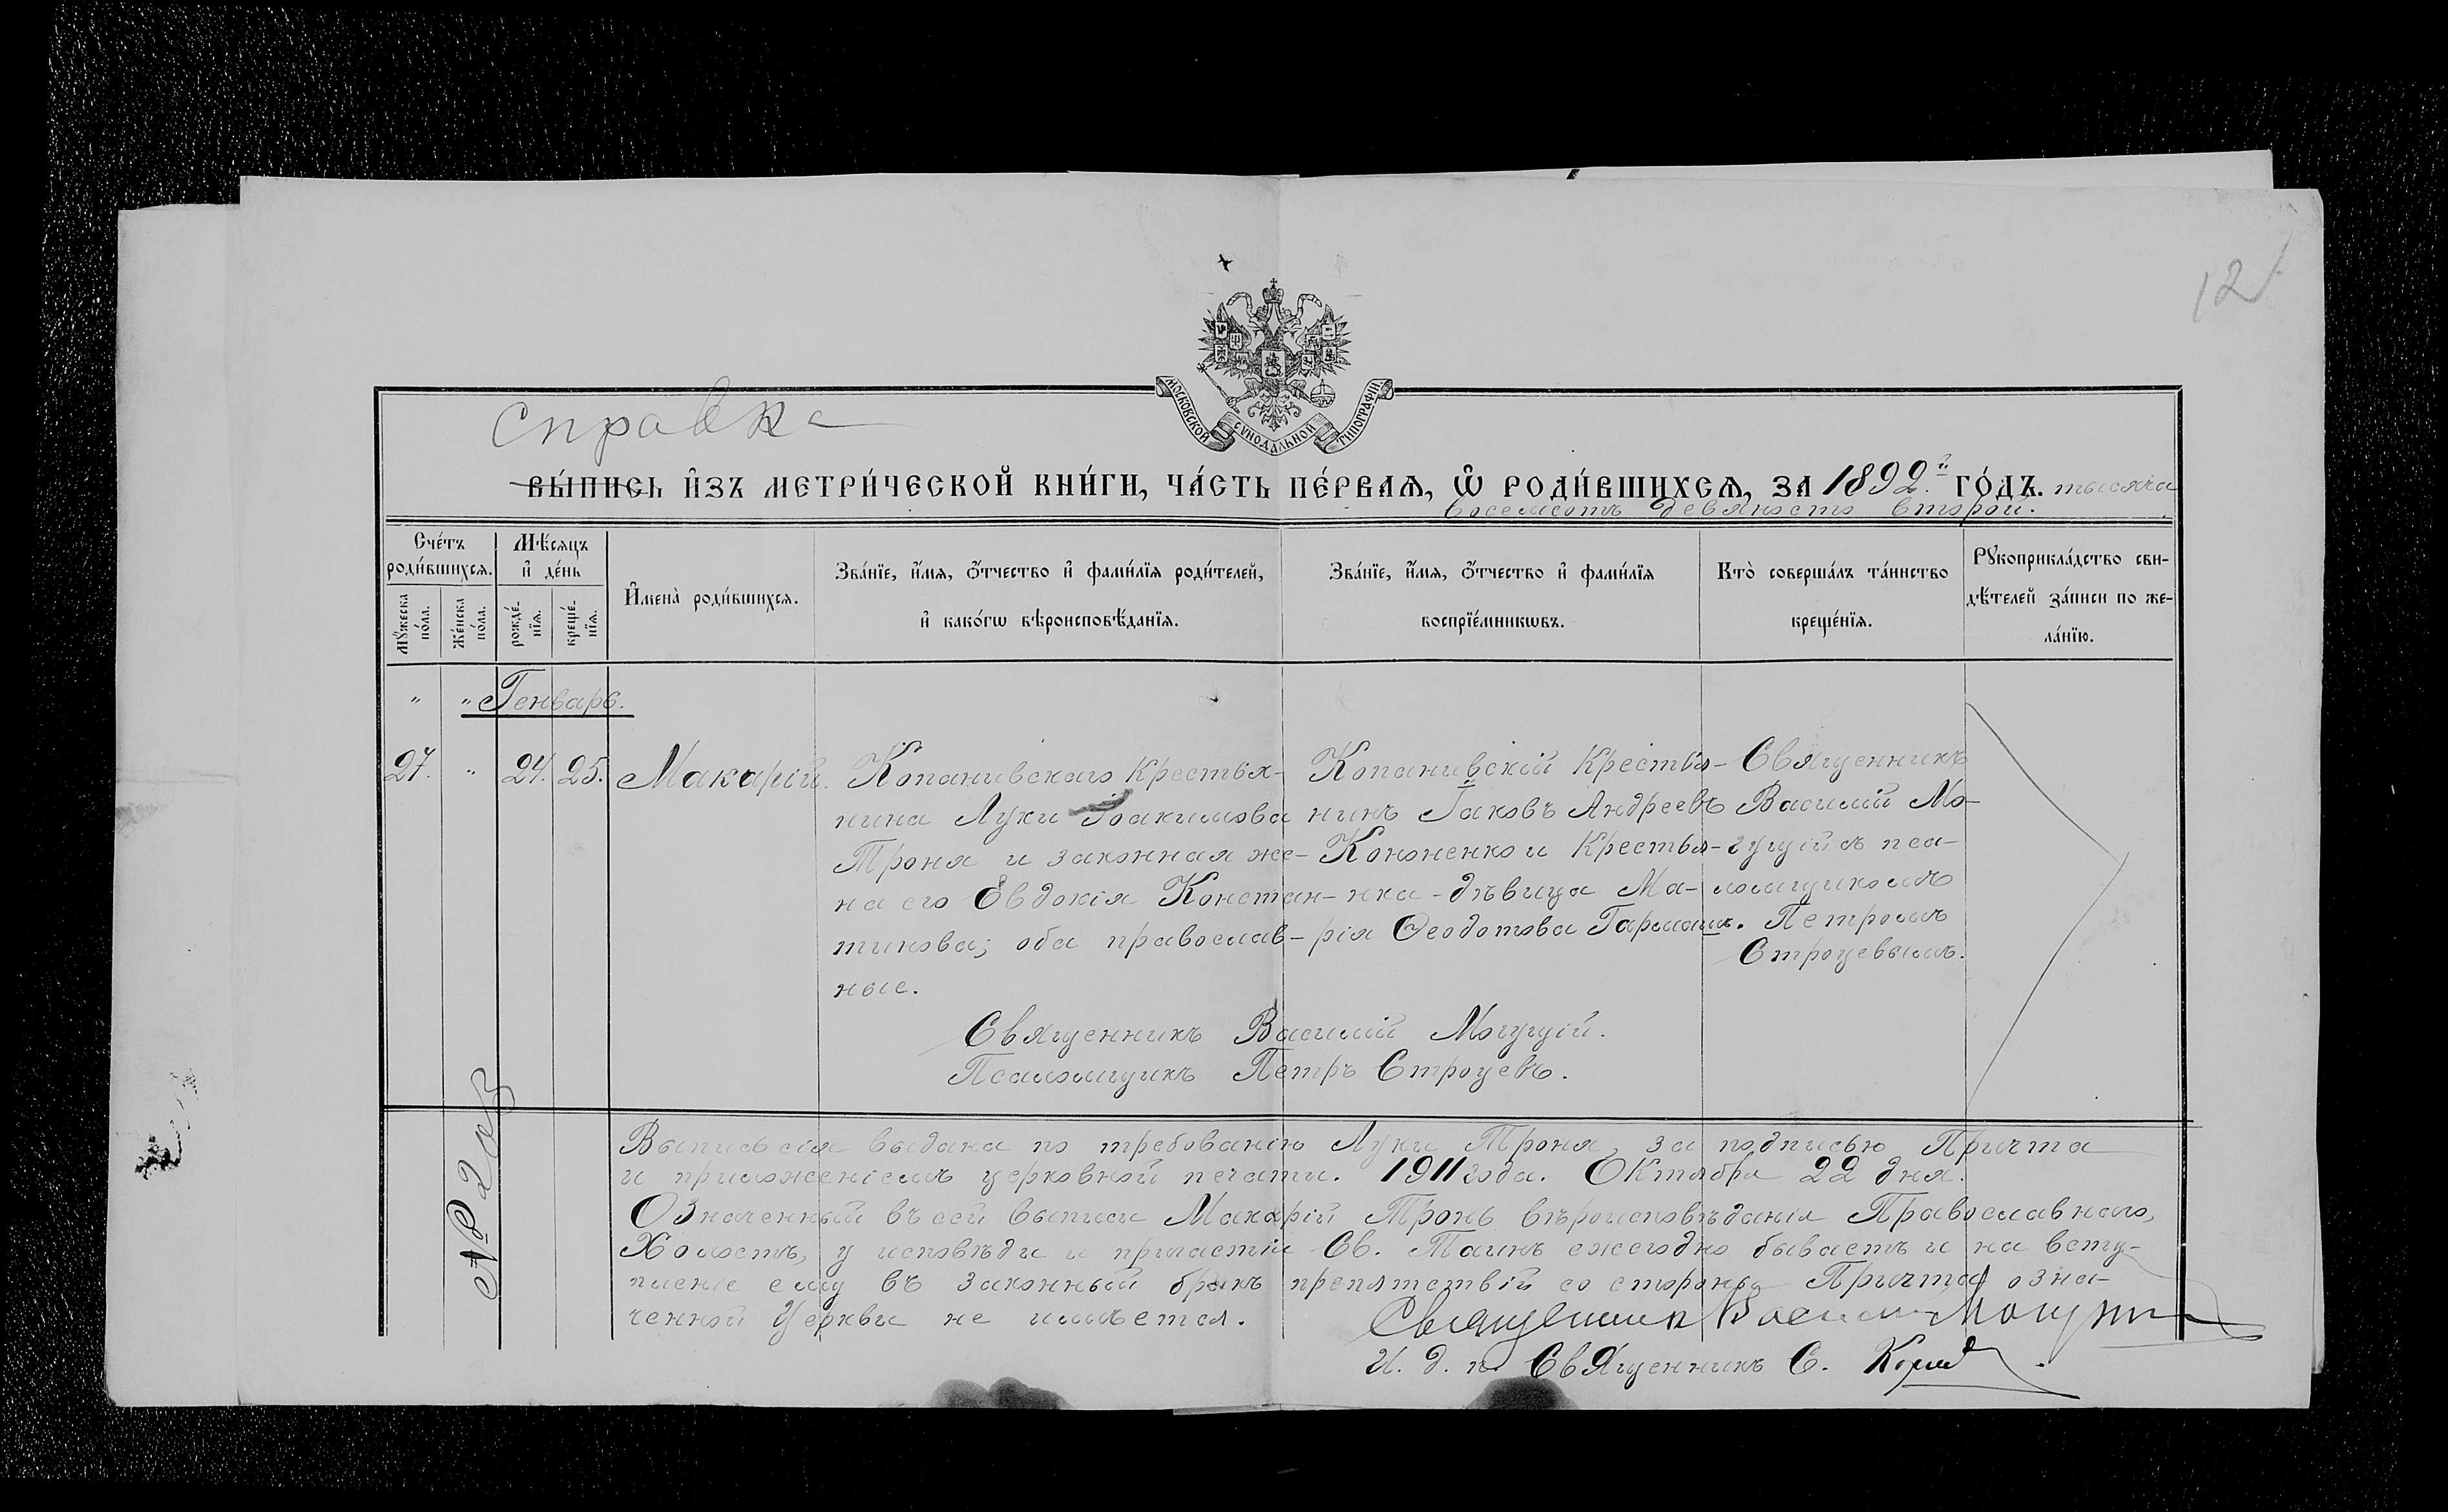 12
МОСКОВСКОЙ СѴНОДАЛЬНОЙ ТИПОГРАФІИ
Справка
ВЫ́ПИСЬ И҆ЗЪ МЕТРИ́ЧЕСКОЙ КНИ́ГИ, ЧА́СТЬ ПЕ́РВАѦ, Ѽ РОДИ́ВШИХСѦ, ЗА 1892.й ГО́ДЪ. тысяча
восемсотъ девяносто второй.
Сче́тъ
роди́вшихсѧ.
Мѣ́сѧцъ
и҆ де́нь
И҆мена̀ роди́вшихсѧ.
Зва́нїе, и҆́мѧ, ѻ҆́тчество и҆ фами́лїѧ роди́телей,
и҆ како́гѡ вѣроисповѣ́данїѧ.
Зва́нїе, и҆́мѧ, ѻ҆́тчество и҆ фами́лїѧ
воспрїе́мникѡвъ.
Кто̀ соверша́лъ та́инство
креще́нїѧ.
Рꙋкоприкла́дство сви-
дѣ́телей за́писи по же-
ла́нїю.
Мꙋ́жеска
по́ла.
Же́нска
по́ла.
рожде́-
нїѧ.
креще́-
нїѧ.
" " Генварь.
27. " 24. 25. Макарій.
Копанивскаго крестья-
нина Луки Іоакимова
Троня и законная же-
на его Евдокія Констан-
тинова; оба православ-
ные.
Копанивскій Крестья-
нинъ Іаковъ Андреевъ
Кононенко и Крестья-
нка - дѣвица Ма-
рія Ѳеодотова Гармаш.
Священникъ
Василій Мо-
гущій съ пса-
ломщикомъ
Петромъ
Строцевымъ.
Священникъ Василій Могущій.
Псаломщикъ Петръ Строцевъ.
№ 203
Выпись сія выдана по требованію Луки Троня, за подписью Причта
и приложеніемъ церковной печати. 1911 года. Октября 22 дня.
Означенный въ сей выписи Макарій Тронь вѣроисповѣданія Православнаго,
Холостъ, у исповѣди и причастіи Св. Таинъ ежегодно бываетъ и на всту-
пленіе ему въ законный бракъ препятствій со стороны Причта озна-
ченной Церкви не имѣется.
Священникъ Василій Могущій
И. д. п. Священникъ С.